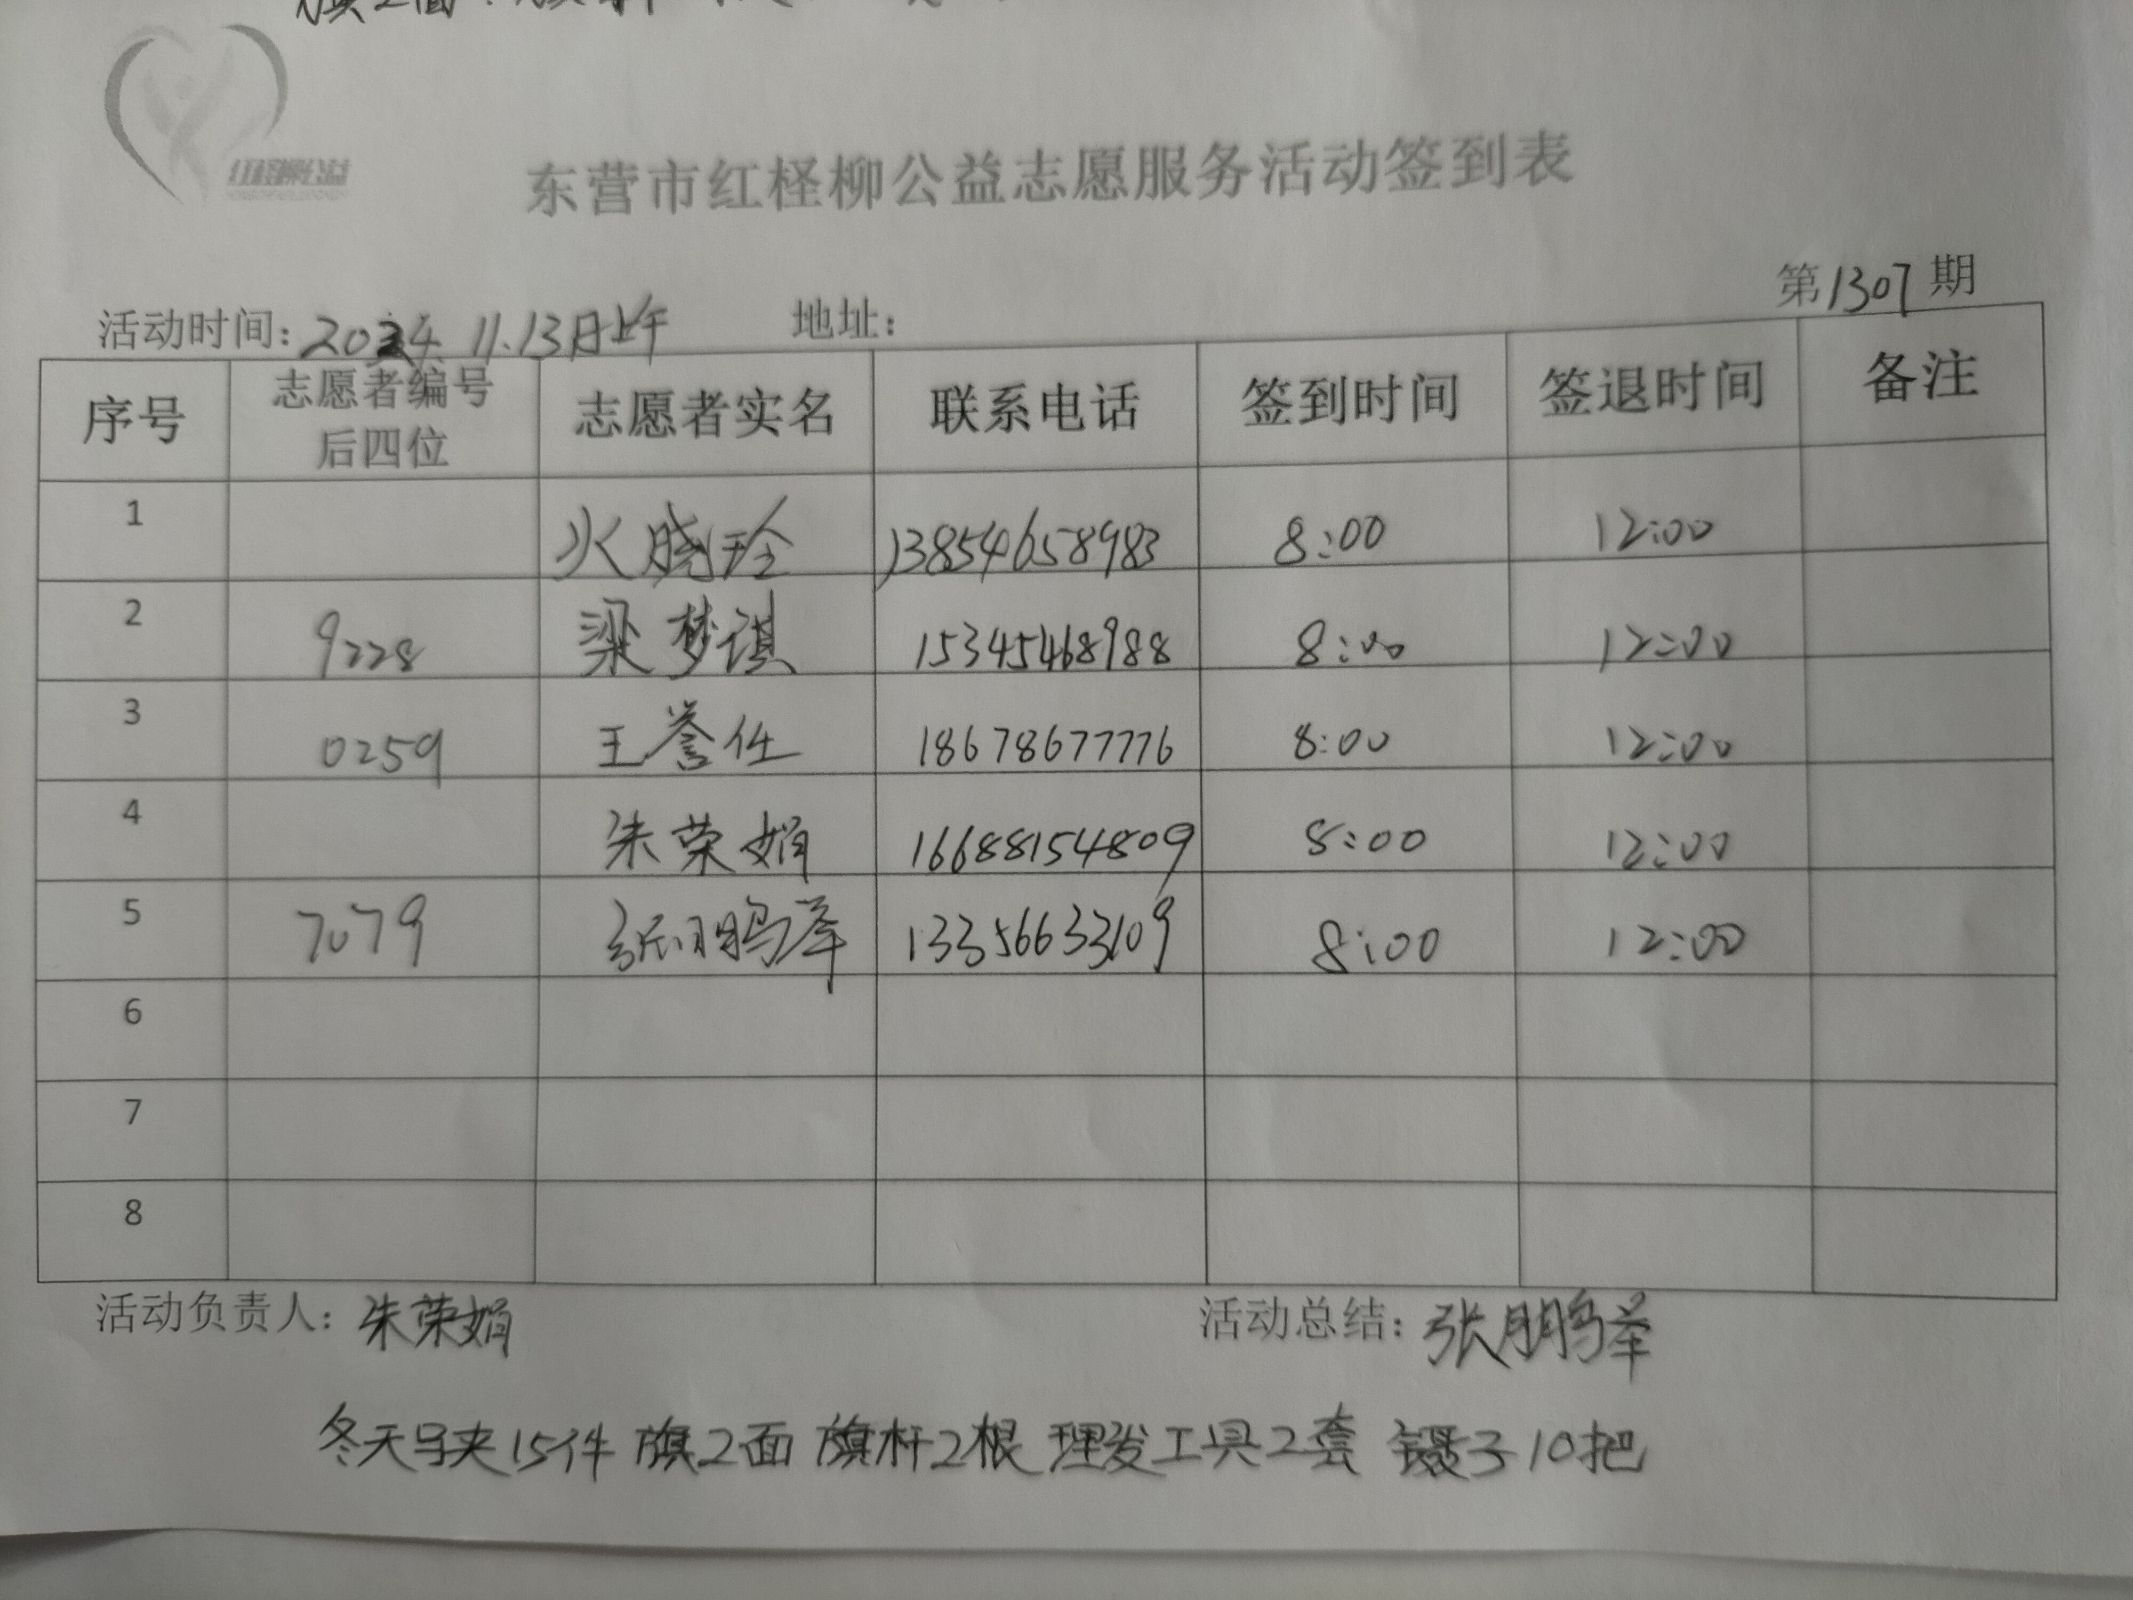 旗2面
红柽柳公益
东营市红柽柳公益志愿服务活动签到表
第1307期
活动时间：2024 11.13日上午 地址：
序号 志愿者编号后四位 志愿者实名 联系电话 签到时间 签退时间 备注
1 火晓玲 13854658983 8:00 12:00
2 9228 梁梦琪 15345468988 8:00 12:00
3 0259 王誉任 18678677776 8:00 12:00
4 朱荣娟 16688154809 8:00 12:00
5 7079 张鹏举 13356633109 8:00 12:00
6
7
8
活动负责人：朱荣娟 活动总结：张鹏举
冬天马夹15件 旗2面 旗杆2根 理发工具2套 镊子10把